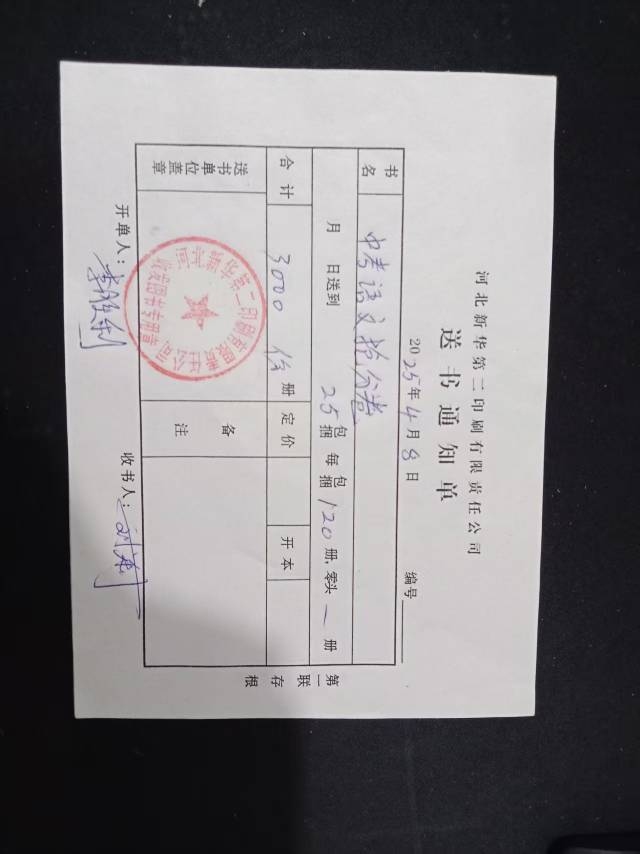 河北新华第二印刷有限责任公司
送书通知单
2025年4月8日 编号
书名 中考语文抢分卷
月 日送到 25 包捆 每 包捆 120 册,零头 一 册
合计 3000 份 册 定价 开本
送书单位盖章 备注
第二印刷有限责任公司
开单人: 收书人:
第一联存根